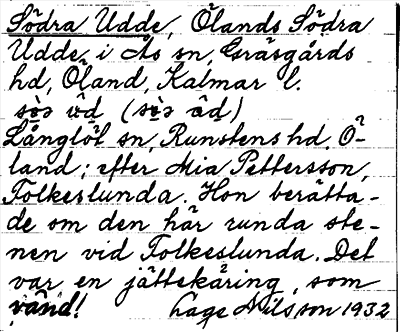 Södra Udde, Ölands Södra
Udde, i Ås sn, Gräsgårds
hd, Öland, Kalmar l.
Långlöt sn, Runstens hd, Ö-
land; efter Mia Pettersson,
Folkeslunda. Hon berätta-
de om den här runda ste-
nen vid Folkeslunda. Det
var en jättekäring, som
vänd! Lage Nilsson 1932